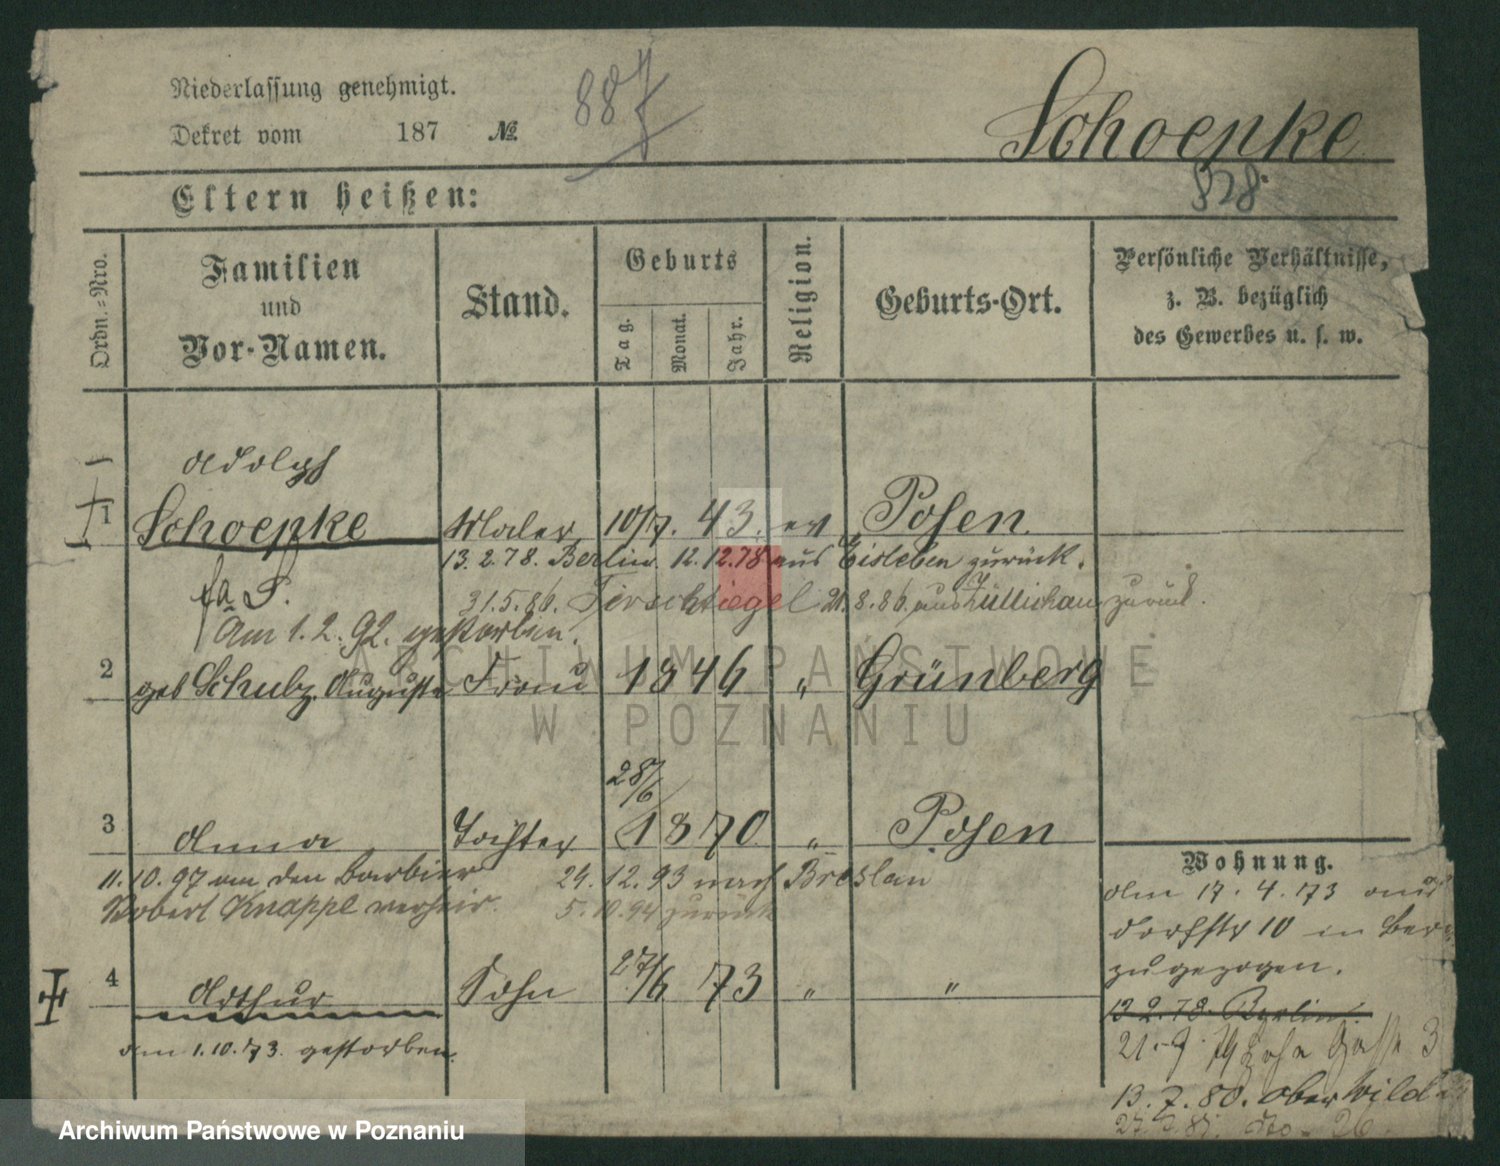 Niederlassung genehmigt.
Dekret vom 187 №
887
Schoepke
828
Eltern heißen:
Ordn.=Nro.
Familien
und
Vor-Namen.
Stand.
Geburts
Tag.
Monat.
Jahr.
Religion.
Geburts-Ort.
Persönliche Verhältnisse,
z. B. bezüglich
des Gewerbes u. s. w.
Adolph
1 Schoepke Maler 10/7. 43. ev Posen
13.2.78. Berlin. 12.12.78 aus Eisleben zurück.
31.5.86. Tirschtiegel 21.8.86. aus Züllichau zurück.
Am 1.2.92. gestorben.
2 geb Schulz, Auguste Frau 1846 " Grünberg
28/6
3 Anna Tochter 1870 " Posen
11.10.97 an den Barbier 24.12.93 nach Breslau
Robert Knappe verheir. 5.10.94 zurück
4 Arthur Sohn 27/6 73 " "
am 1.10.73. gestorben.
Wohnung.
Am 17.4.73 aus
dorfstr 10 in Ber
zugezogen.
13.2.78. Berlin.
21.9.79 Gasse 3
13.7.80. Ober Wilda
do. 26
ARCHIWUM PAŃSTWOWE
W POZNANIU
Archiwum Państwowe w Poznaniu